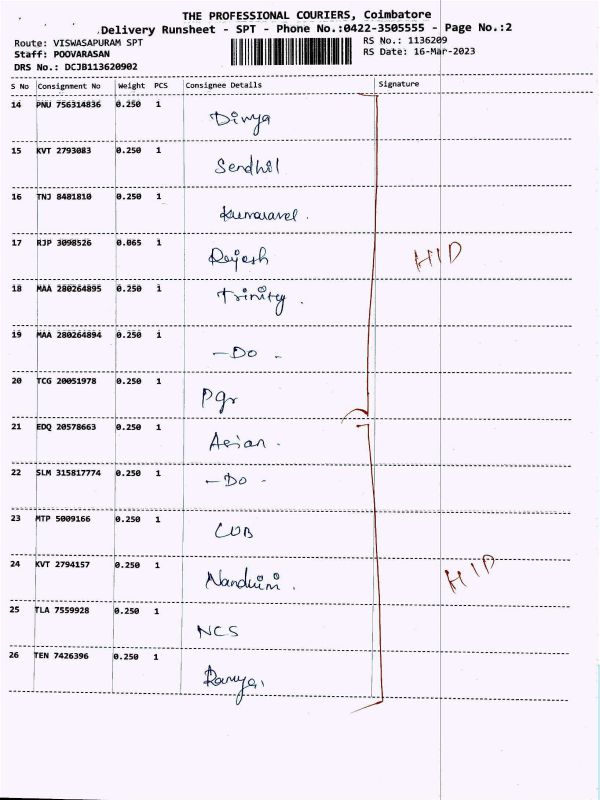 THE PROFESSIONAL COURIERS, Coimbatore
Delivery Runsheet - SPT - Phone No.:0422-3505555 - Page No.:2
Route: VISWASAPURAM SPT RS No.: 1136209
Staff: POOVARASAN RS Date: 16-Mar-2023
DRS No.: DCJB113620902
S No Consignment No Weight PCS Consignee Details Signature
14 PNU 756314836 0.250 1 Divya
15 KVT 2793083 0.250 1 Sendhil
16 TNJ 8481810 0.250 1 Kumaravel.
17 RJP 3098526 0.065 1 Rajesh HID
18 MAA 280264895 0.250 1 Trinity.
19 MAA 280264894 0.250 1 -Do-
20 TCG 20051978 0.250 1 Pgr
21 EDQ 20578663 0.250 1 Asian.
22 SLM 315817774 0.250 1 -Do-
23 MTP 5009166 0.250 1 CUB
24 KVT 2794157 0.250 1 Nandhini. HID
25 TLA 7559928 0.250 1 NCS
26 TEN 7426396 0.250 1 Ramya.